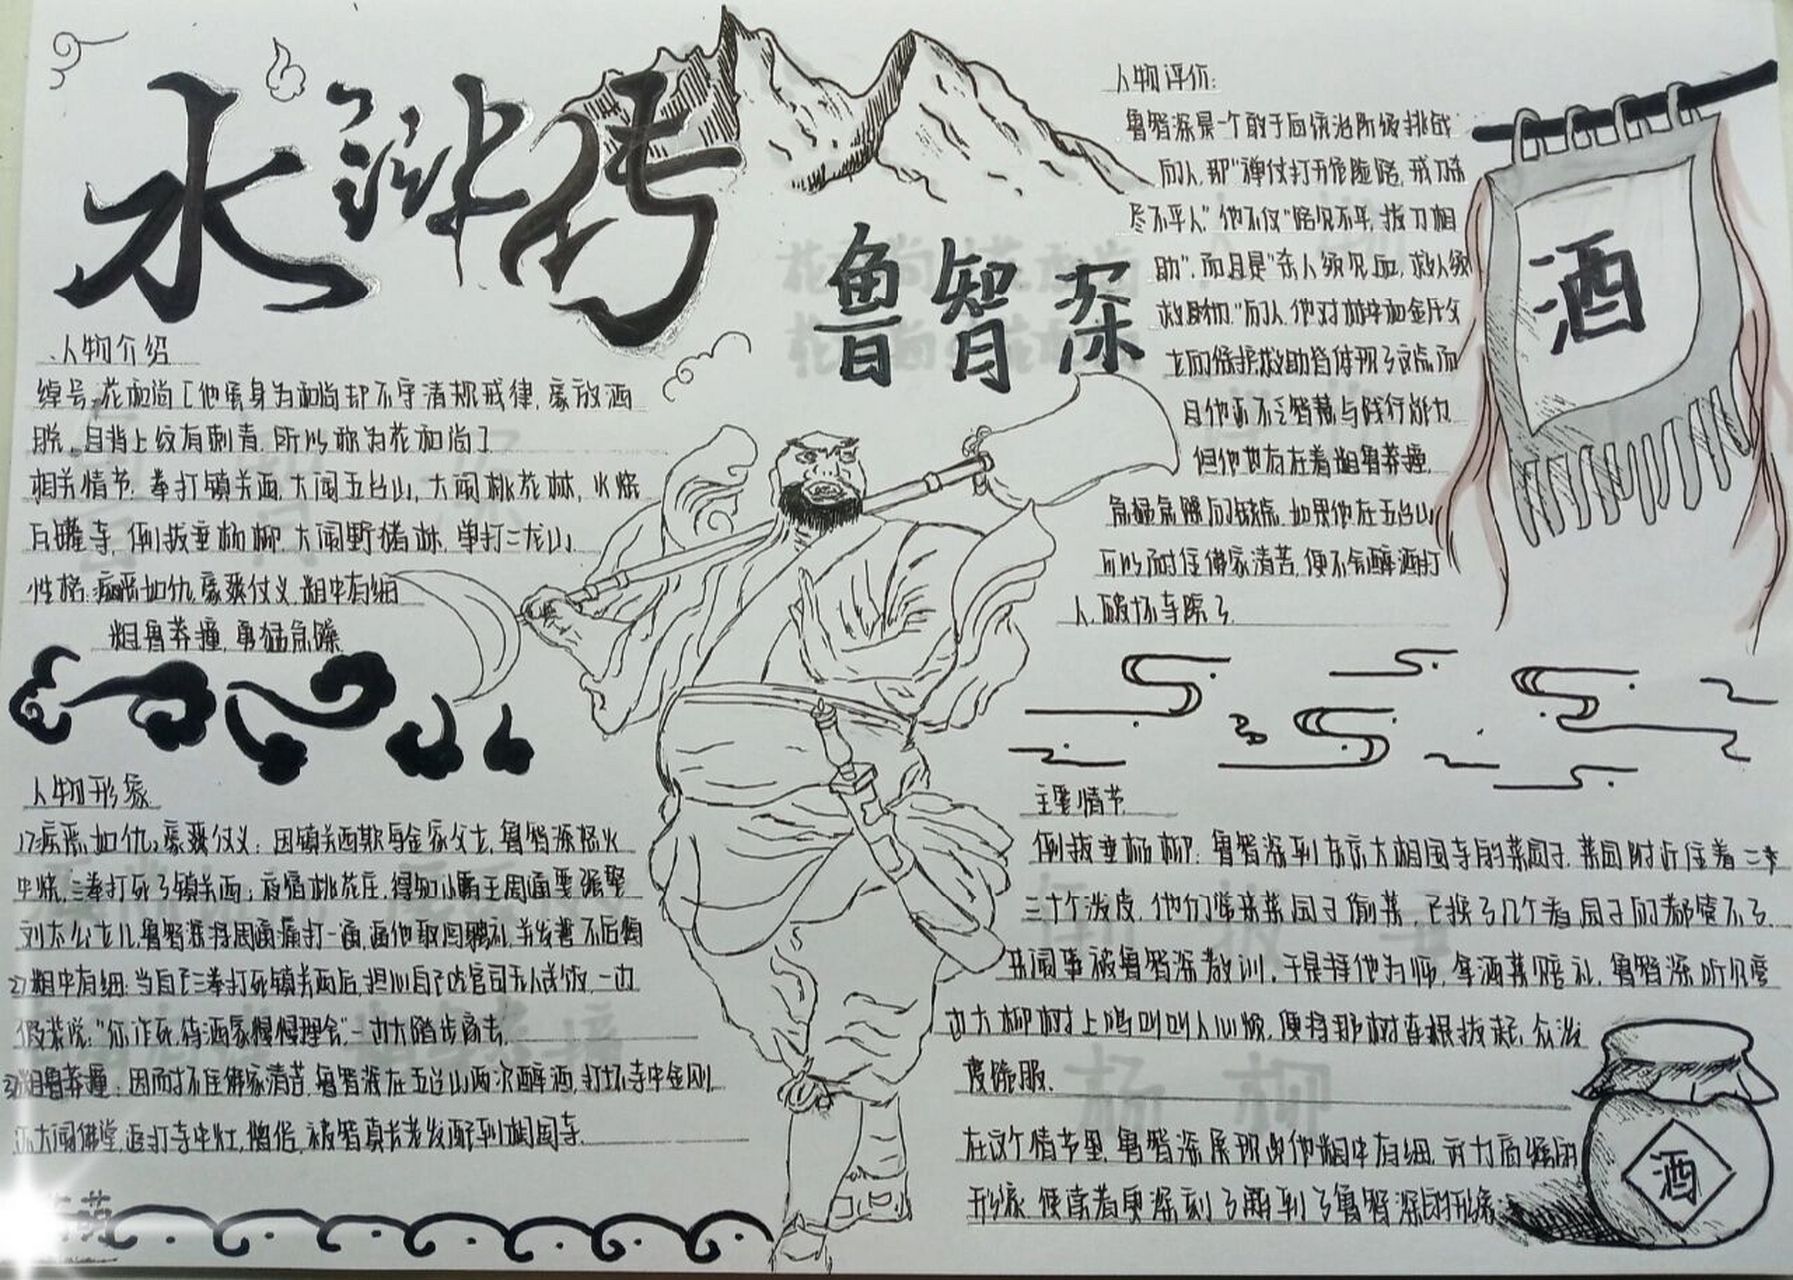 水浒传
鲁智深
人物介绍
绰号:花和尚[他虽身为和尚却不守清规戒律,豪放洒
脱。且背上纹有刺青,所以称为花和尚]
相关情节:拳打镇关西,大闹五台山,大闹桃花林,火烧
瓦罐寺,倒拔垂杨柳,大闹野猪林,单打二龙山
性格:疾恶如仇,豪爽仗义,粗中有细
粗鲁莽撞,勇猛急躁
人物形象
1)疾恶如仇,豪爽仗义:因镇关西欺辱金家父女,鲁智深怒火
中烧,三拳打死了镇关西;夜宿桃花庄,得知小霸王周通要强娶
刘太公女儿,鲁智深将周通痛打一通,逼他取回聘礼,并发誓不后悔
2)粗中有细:当自己三拳打死镇关西后,担心自己吃官司无人送饭,一边
假装说:"你诈死,待洒家慢慢理会"一边大踏步离去.
3)粗鲁莽撞:因耐不住佛家清苦,鲁智深在五台山两次醉酒,打坏寺中金刚,
大闹佛堂,追打寺中 僧侣,被智真长老发配到相国寺.
人物评价:
鲁智深是一个敢于向统治阶级挑战
的人,那"禅仗打开危险路,戒刀杀
尽不平人",他不仅"路见不平,拔刀相
助",而且是"杀人须见血,救人须
救彻"的人,他对林冲和金氏父
女的保护救助皆体现了这点,而
且他而不乏智慧与践行能力
但他也存在着粗鲁莽撞,
急猛急躁的缺点,如果他在五台山
可以耐住佛家清苦,便不会醉酒打
人,破坏寺院了.
酒
主要情节
倒拔垂杨柳:鲁智深到东京大相国寺的菜园子,菜园附近住着二
三十个泼皮,他们常来菜园子偷菜,已换了几个看园子的都管不了.
被鲁智深教训,于是拜他为师,拿酒菜赔礼,鲁智深听见门
边大柳树上鸟叫叫人心烦,便将那树连根拔起,众泼
皮
在这个情节里,鲁智深展现出他粗中有细,武力高强的
形象,使读者更深刻了解到了鲁智深的形象
酒